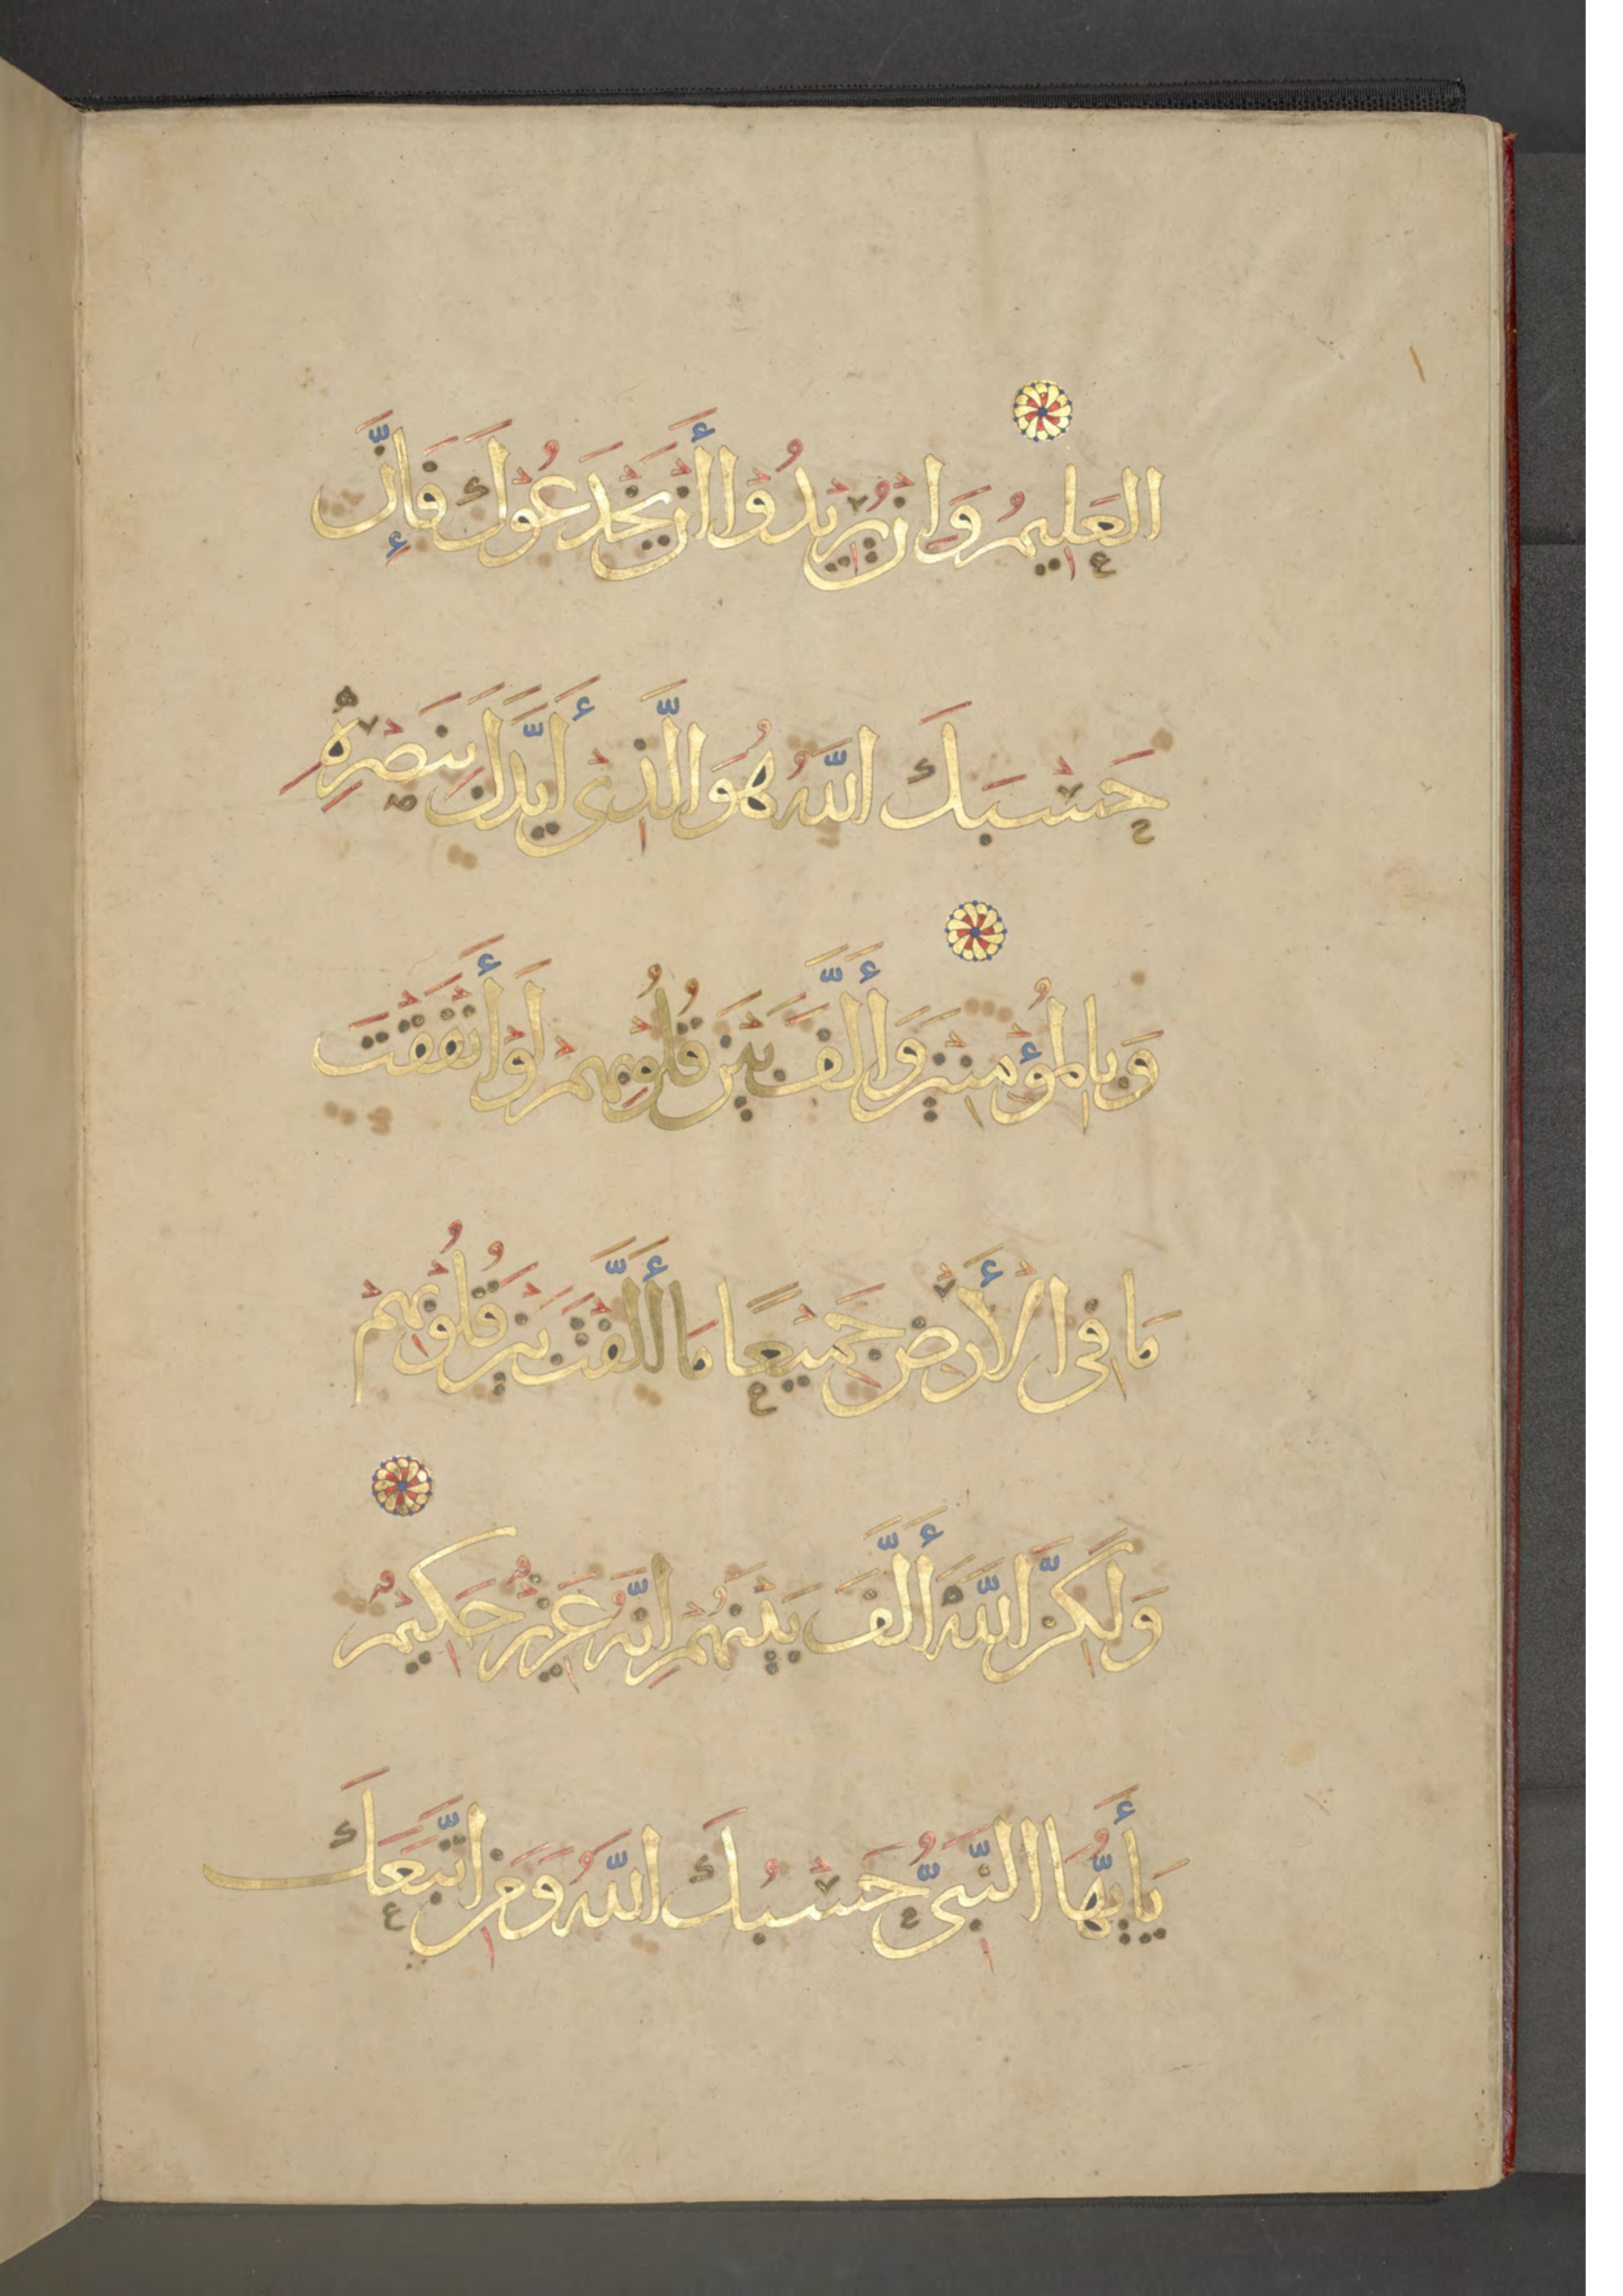 العَلِيمُ وَاِنْ يُرِيْدُوْا أَنْ يَخْدَعُوْكَ فَإِنَّ
حَسْبَكَ اللّٰهُ هُوَ الَّذِىْ أَيَّدَكَ بِنَصْرِهِ
وَبِالْمُؤْمِنِينَ وَأَلَّفَ بَيْنَ قُلُوبِهِمْ لَوْ أَنْفَقْتَ
مَا فِى الْأَرْضِ جَمِيْعًا مَا أَلَّفْتَ بَيْنَ قُلُوْبِهِمْ
وَلَكِنَّ اللّٰهَ أَلَّفَ بَيْنَهُمْ اِنَّهُ عَزِيْزٌ حَكِيْمٌ
يَأَيُّهَا النَّبِىُّ حَسْبُكَ اللّٰهُ وَمَنِ اتَّبَعَكَ